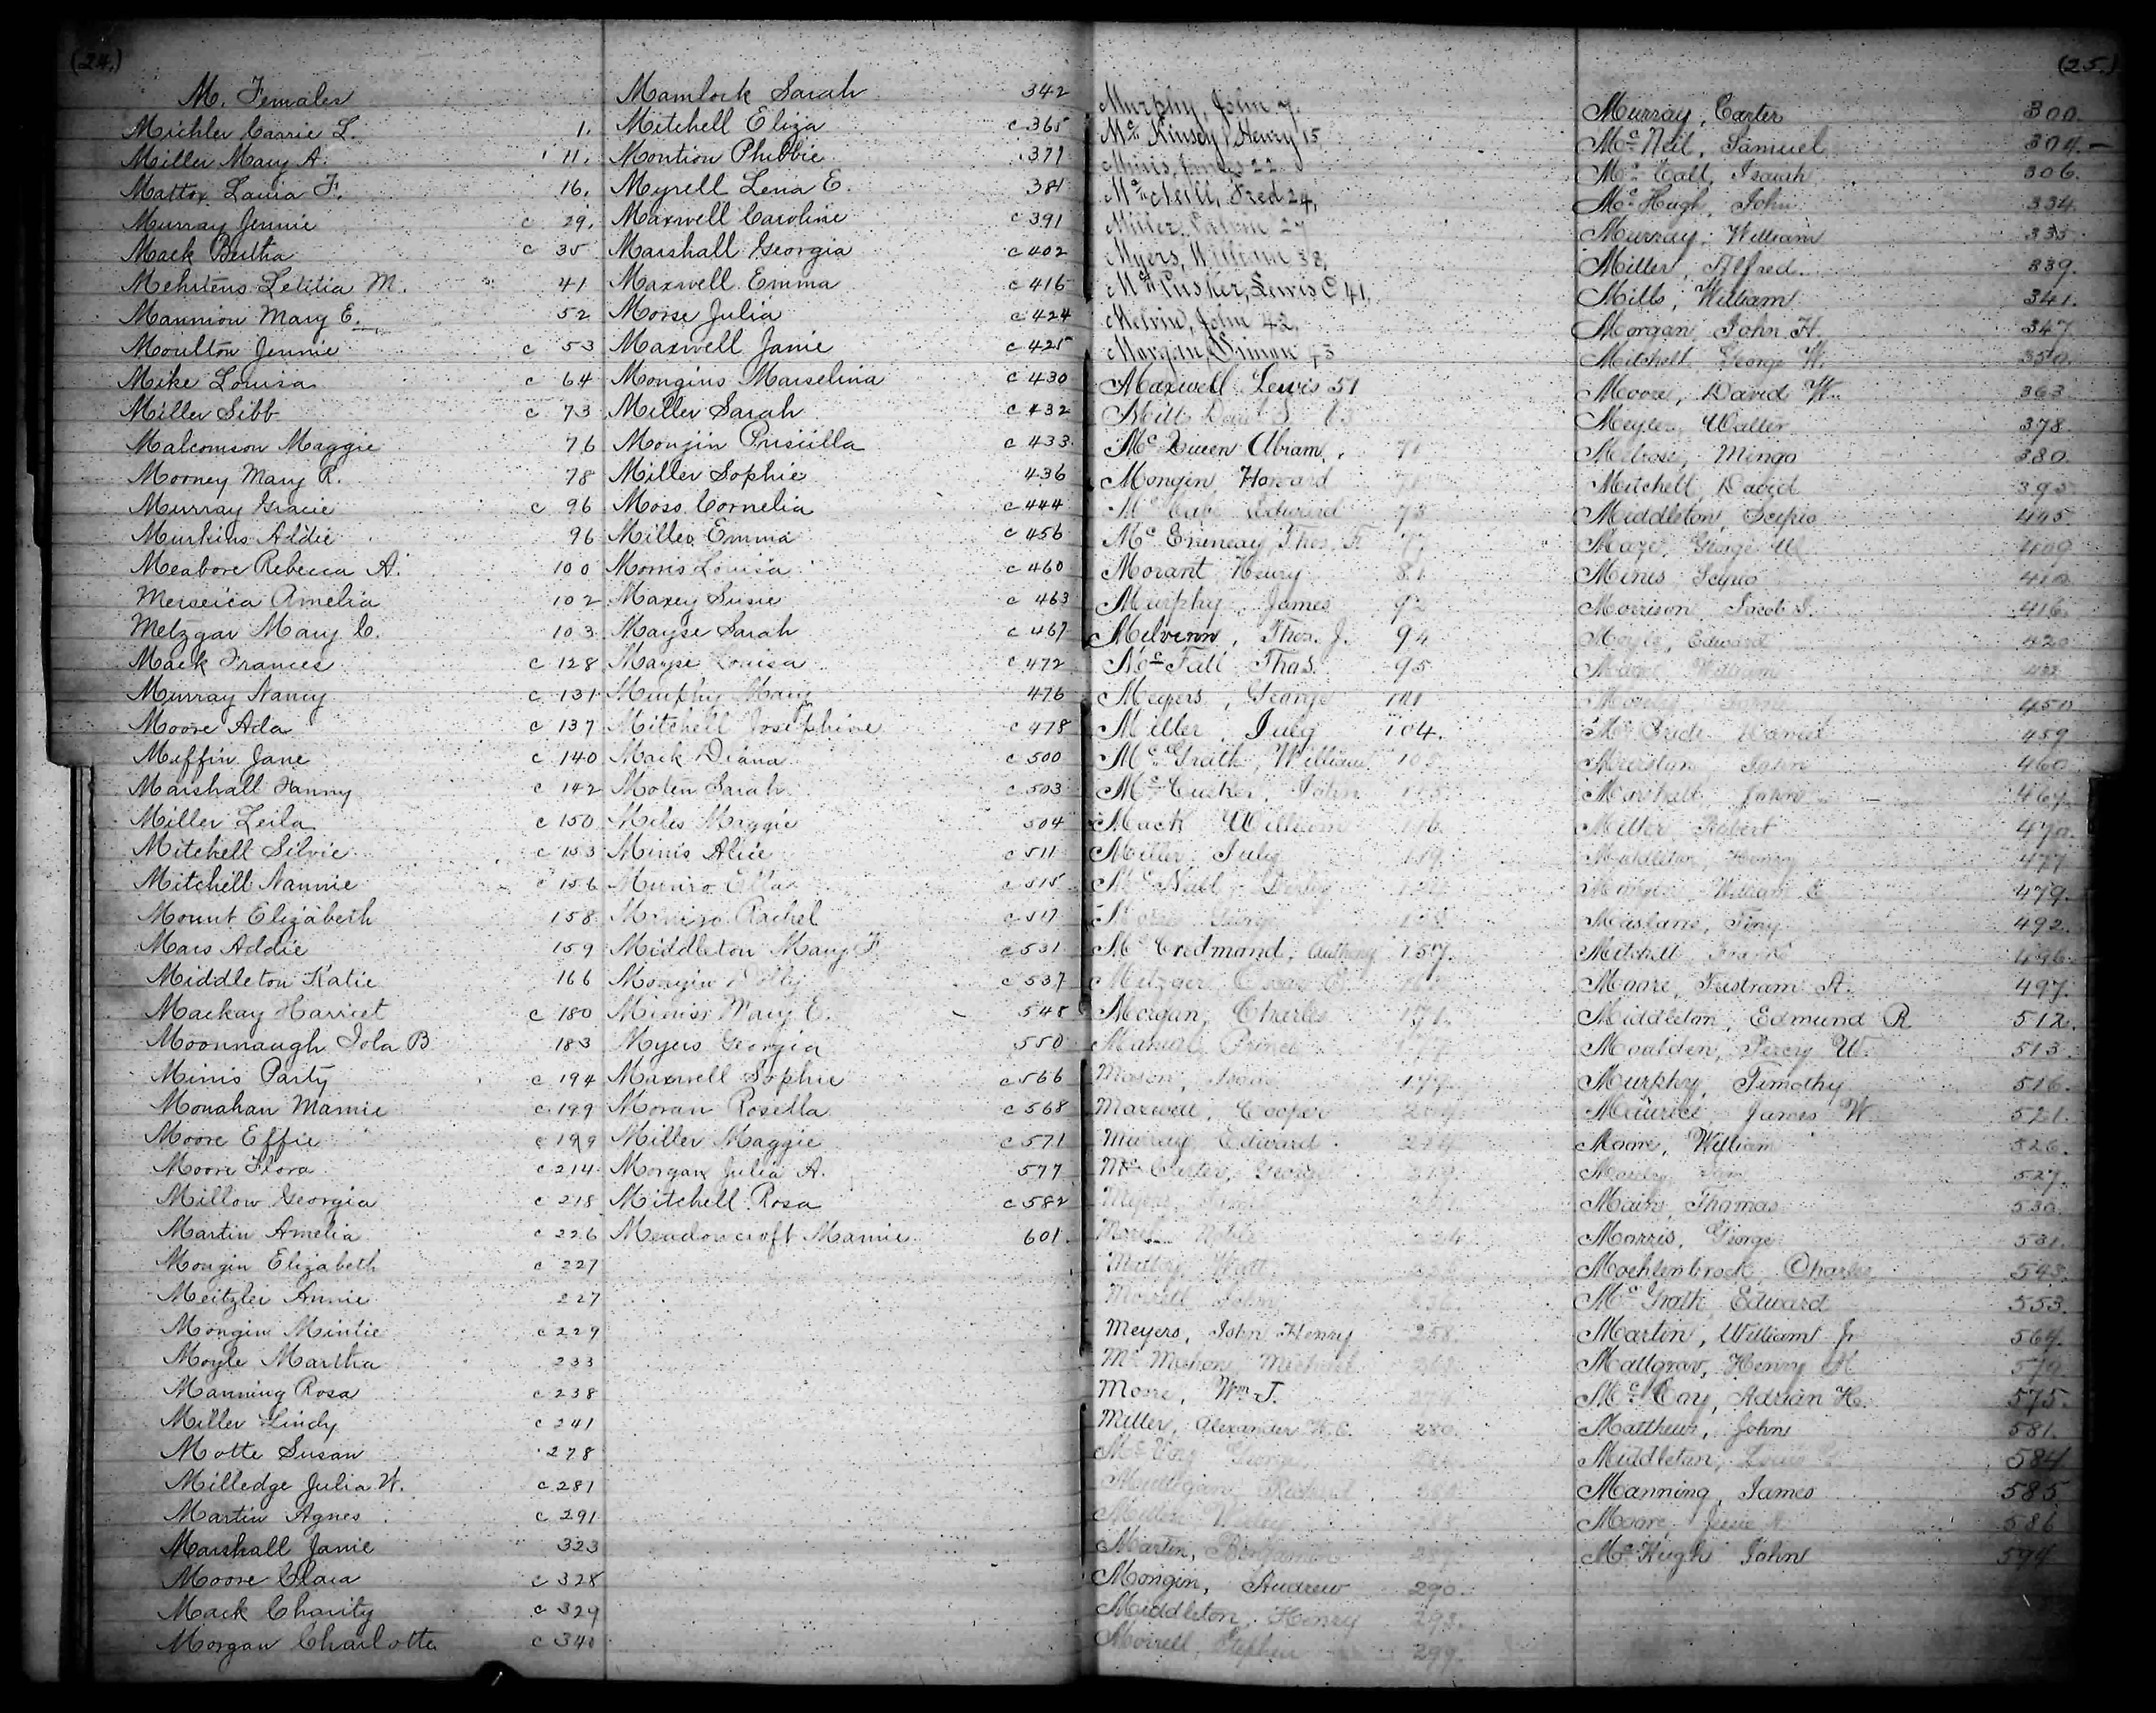 (24.)
M. Females
Michler Carrie L. 1.
Miller Mary A. 11.
Mattox Laura F. 16.
Murray Jennie c 29.
Mack Bertha c 35
Mehrtens Letitia M. 41
Mannion Mary E. 52
Moulton Jennie c 53
Mike Louisa c 64
Miller Sibb c 73
Malcomson Maggie 76
Mooney Mary R. 78
Murray Gracie c 96
Murkins Addie 96
Meabore Rebecca A. 100
Amelia 102
Metzgar Mary C. 103
Mack Frances c 128
Murray Nancy c 131
Moore Ada c 137
Miffin Jane c 140
Marshall Fanny c 142
Miller Leila c 150
Mitchell Silvie c 153
Mitchell Nannie c 156
Mount Elizabeth 158
Mars Addie 159
Middleton Katie 166
Mackay Harriet c 180
Moonnaugh Iola B 183
Minis Party c 194
Monahan Mamie c 199
Moore Effie c 199
Moore Flora c 214
Millow Georgia c 218
Martin Amelia c 226
Mongin Elizabeth c 227
Meitzler Annie 227
Mongin Mintie c 229
Moyle Martha 233
Manning Rosa c 238
Miller Lindy c 241
Motte Susan 278
Milledge Julia W. c 281
Martin Agnes c 291
Marshall Janie 323
Moore Clara c 328
Mack Charity c 329
Morgan Charlotte c 340
Mamlock Sarah 342
Mitchell Eliza c 365
Montion Phibbie 371
Myrell Lena E. 381
Maxwell Caroline c 391
Marshall Georgia c 402
Maxwell Emma c 416
Morse Julia c 424
Maxwell Janie c 425
Mongins Marselina c 430
Miller Sarah c 432
Monjin Prisiilla c 433
Miller Sophie 436
Moss Cornelia c 444
Miller Emma c 456
Morris Louisa c 460
Maxey Susie c 463
Mayse Sarah c 467
Mayse Louisa c 472
Murphy Mary 476
Mitchell Josephine c 478
Mack Diana c 500
Moten Sarah c 503
Miles Maggie 504
Minis Alice c 511
Munro Ella c 515
Rachel c 517
Middleton Mary F. c 531
Mongin Dolly c 537
Mary E. 548
Myers Georgia 550
Maxwell Sophie c 566
Moran Rosella c 568
Miller Maggie c 571
Morgan Julia A. 577
Mitchell Rosa c 582
Meadowcroft Mamie 601
Murphy, John 7.
Mc Kinsey, Henry 15
Minis, James 22
Mc Neill, Fred 24,
Miller, 27
Myers, William 38,
Lewis C 41,
Melvin, John 42,
Morgan, Simon 43
Maxwell Lewis 51
Mc Queen Abram 71
Mongin Howard
Mc Cabe Edward 73
Thos. F. 77
Morant Henry 81
Murphy, James 92
Milvinn, Thos. J. 94
Mc Fall Thas. 95
Meyers, George 101
Miller, July 104.
Mc Grath, William
Mc Cusker, John
Mack William 116
Miller July 119
Mc Credmond, Anthony 157.
Metzger,
Morgan, Charles 171
Prince 177
Mason, Isaac 177.
Maxwell, Cooper
Murray, Edward 214
Mc Carter, George 219.
Morrell John 236.
Meyers, John Henry 258.
Mc Mahon, Michael
Moore, Wm J. 274
Miller, Alexander W. C. 280.
Mulligan,
Martin, Benjamin 289
Mongin, Andrew 290.
Middleton, Henry 293.
Morrell, Stephen 299.
(25.)
Murray, Carter 300.
Mc Neil, Samuel 304.
Mc Call, Isaiah 306.
Mc Hugh, John 334
Murray, William 335
Miller, Alfred. 339.
Mills, William 341.
Morgan John H. 347
Mitchell George W. 350.
Moore, David W. 363
Walter 378.
Melrose, Mingo 380.
Mitchell David 395
Middleton, Scipio 445
George W. 409
Minis Scipio 410
Morrison Jacob S. 416.
Moyle, Edward 420
William
450
Mc Bride Daniel 459
John 460
Marshall John 467
Miller Robert 470.
Middleton, Henry 477
William E 479.
Tony 492.
Mitchell Frank 496.
Moore, Tristram A. 497.
Middleton, Edmund R 512.
Moulden, Percy W. 513.
Murphy, Timothy 516.
Maurice, James W. 521.
Moore, William 526.
527.
Main, Thomas 530.
Morris, George 531.
Moehlenbrock, Charles 543.
Mc Grath Edward 553.
Martin, William Jr 564.
Henry M
Mc Cay, Adrian H. 575.
Matthew, John 581.
Middleton, Louis 584
Manning, James 585
Moore, 586
Mc Hugh John 594